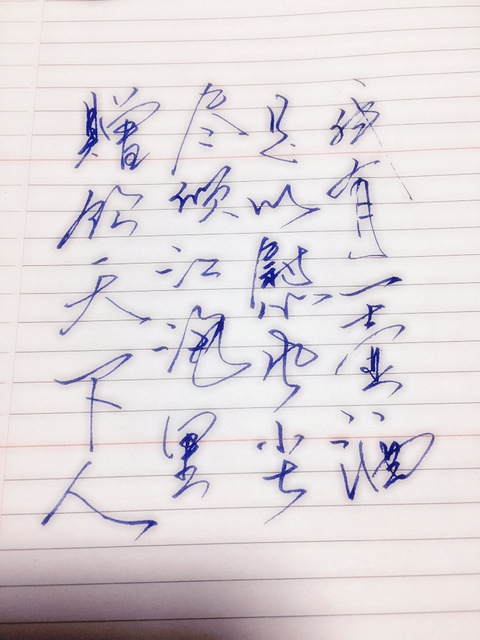 我有一壶酒
足以慰风尘
尽倾江海里
贈饮天下人